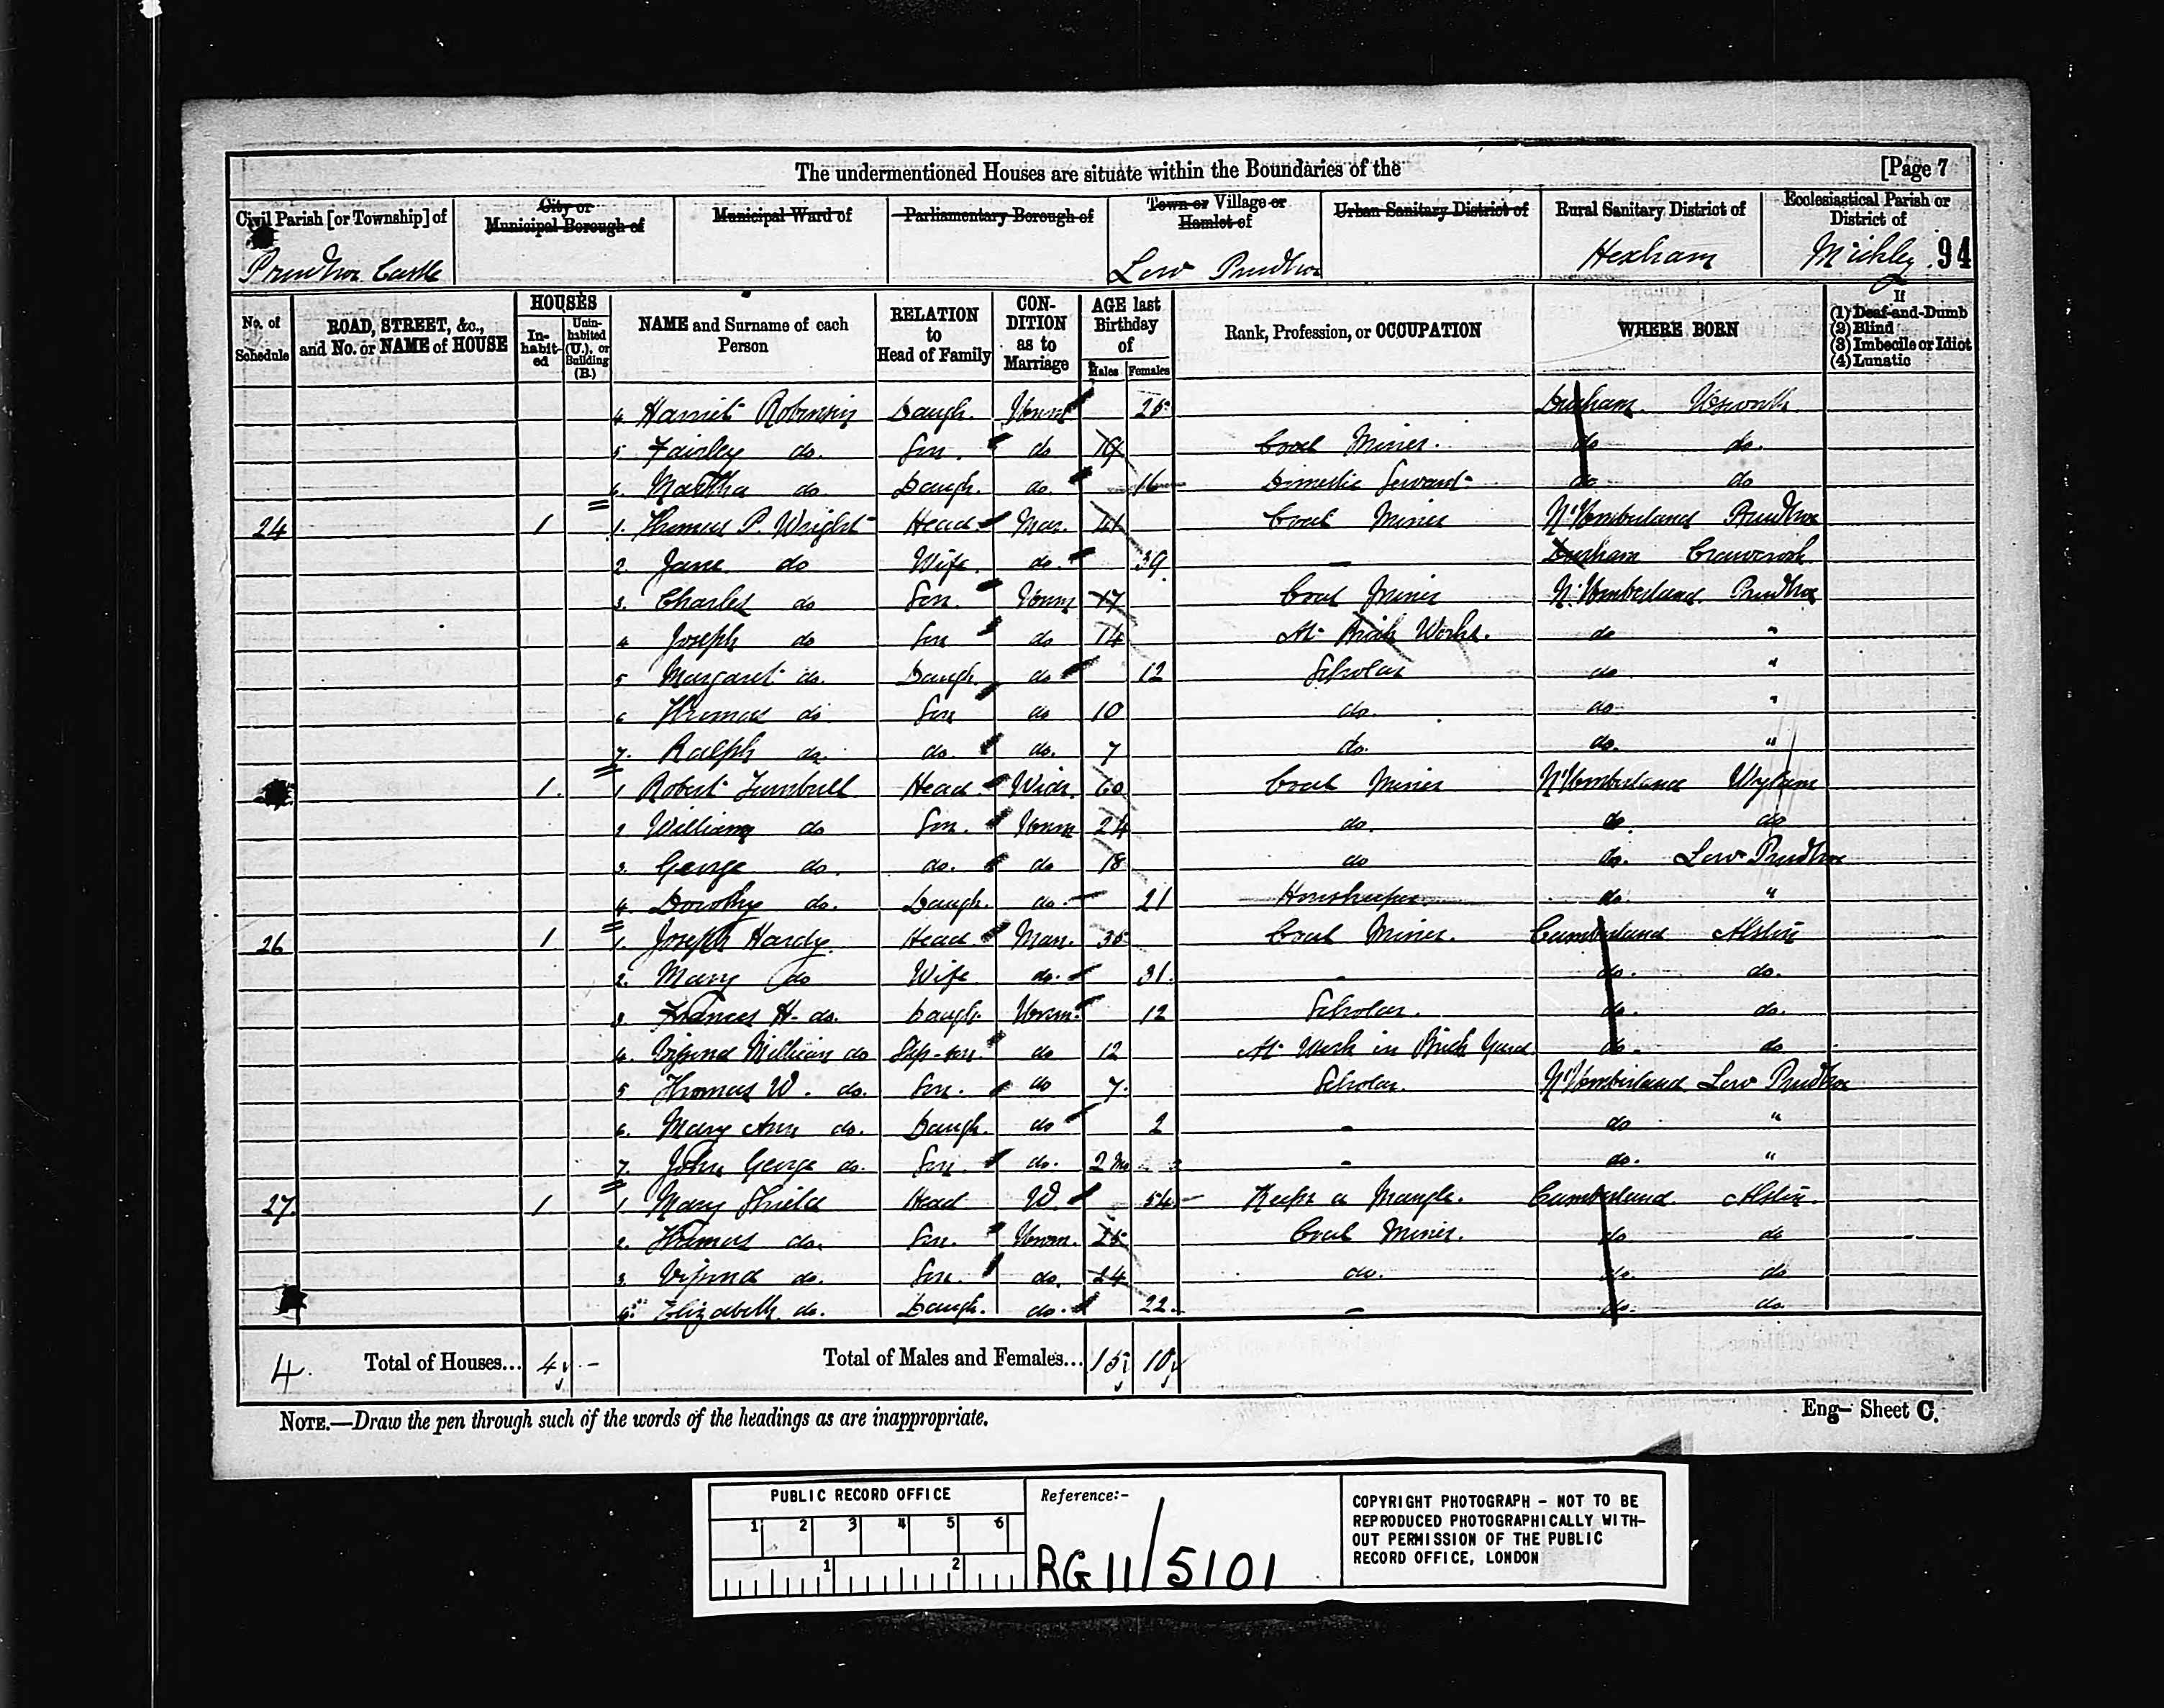 The undermentioned Houses are situate within the Boundaries of the [Page 7
Civil Parish [or Township] of City or Municipal Borough of Municipal Ward of Parliamentary Borough of Town or Village or Hamlet of Urban Sanitary District of Rural Sanitary District of Ecclesiastical Parish or District of
Prudhoe Castle Low Prudhoe Hexham Mickley 94
No. of Schedule ROAD, STREET, &c., and No. or NAME of HOUSE HOUSES Inhabited Uninhabited (U.), or Building (B.) NAME and Surname of each Person RELATION to Head of Family CONDITION as to Marriage AGE last Birthday of Males Females Rank, Profession, or OCCUPATION WHERE BORN If (1) Deaf-and-Dumb (2) Blind (3) Imbecile or Idiot (4) Lunatic
4. Harriet Robinson Daugh. Unm 25 Durham Usworth
5 Fairley do. Son. do 19 Coal Miner. do do.
6. Martha do. Daugh. do. 16 Domestic Servant do do
24 1 1. Thomas P. Wright Head Mar. 41 Coal Miner N'Umberland Prudhoe
2. Jane do Wife. do. 39 – Durham Crawcrook
3. Charles do Son. Unm 17 Coal Miner N'Umberland Prudhoe
4 Joseph do Son do 14 At Brick Works. do "
5 Margaret do. Daugh. do 12 Scholar do "
6 Thomas do Son do 10 do. do "
7. Ralph do. do. do. 7 do. do. "
1. 1 Robert Turnbull Head Widr. 60 Coal Miner N'Umberland Wylam
2 William do Son. Unm 24 do. do. do
3. George do. do. do 18 do do. Low Prudhoe
4. Dorothy do. Daugh. do. 21 Housekeeper do. "
26 1 1. Joseph Hardy Head Mar. 35 Coal Miner. Cumberland Alston
2. Mary do Wife do. 31. – do. do.
3. Frances H. do. Daugh. Unm. 12 Scholar. do. do.
4. Vipond Millican do Step-son. do 12 At Work in Brick Yard do. do
5 Thomas W. do. Son. do 7. Scholar. N'Umberland Low Prudhoe
6. Mary Ann do. Daugh. do 2 – do "
7. John George do. Son. do. 2 Mo – do. "
27. 1 1 Mary Shield Head W. 54 Keeps a Mangle. Cumberland Alston.
2. Thomas do. Son. Unm. 25 Coal Miner. do do
3. Vipond do. Son. do. 24 do. do. do
4. Elizabeth do. Daugh. do. 22 – do. do
4. Total of Houses... 4 – Total of Males and Females... 15 10
NOTE.—Draw the pen through such of the words of the headings as are inappropriate. Eng— Sheet C.
PUBLIC RECORD OFFICE
1 2 3 4 5 6
1 2
Reference:-
RG 11/5101
COPYRIGHT PHOTOGRAPH – NOT TO BE
REPRODUCED PHOTOGRAPHICALLY WITH-
OUT PERMISSION OF THE PUBLIC
RECORD OFFICE, LONDON